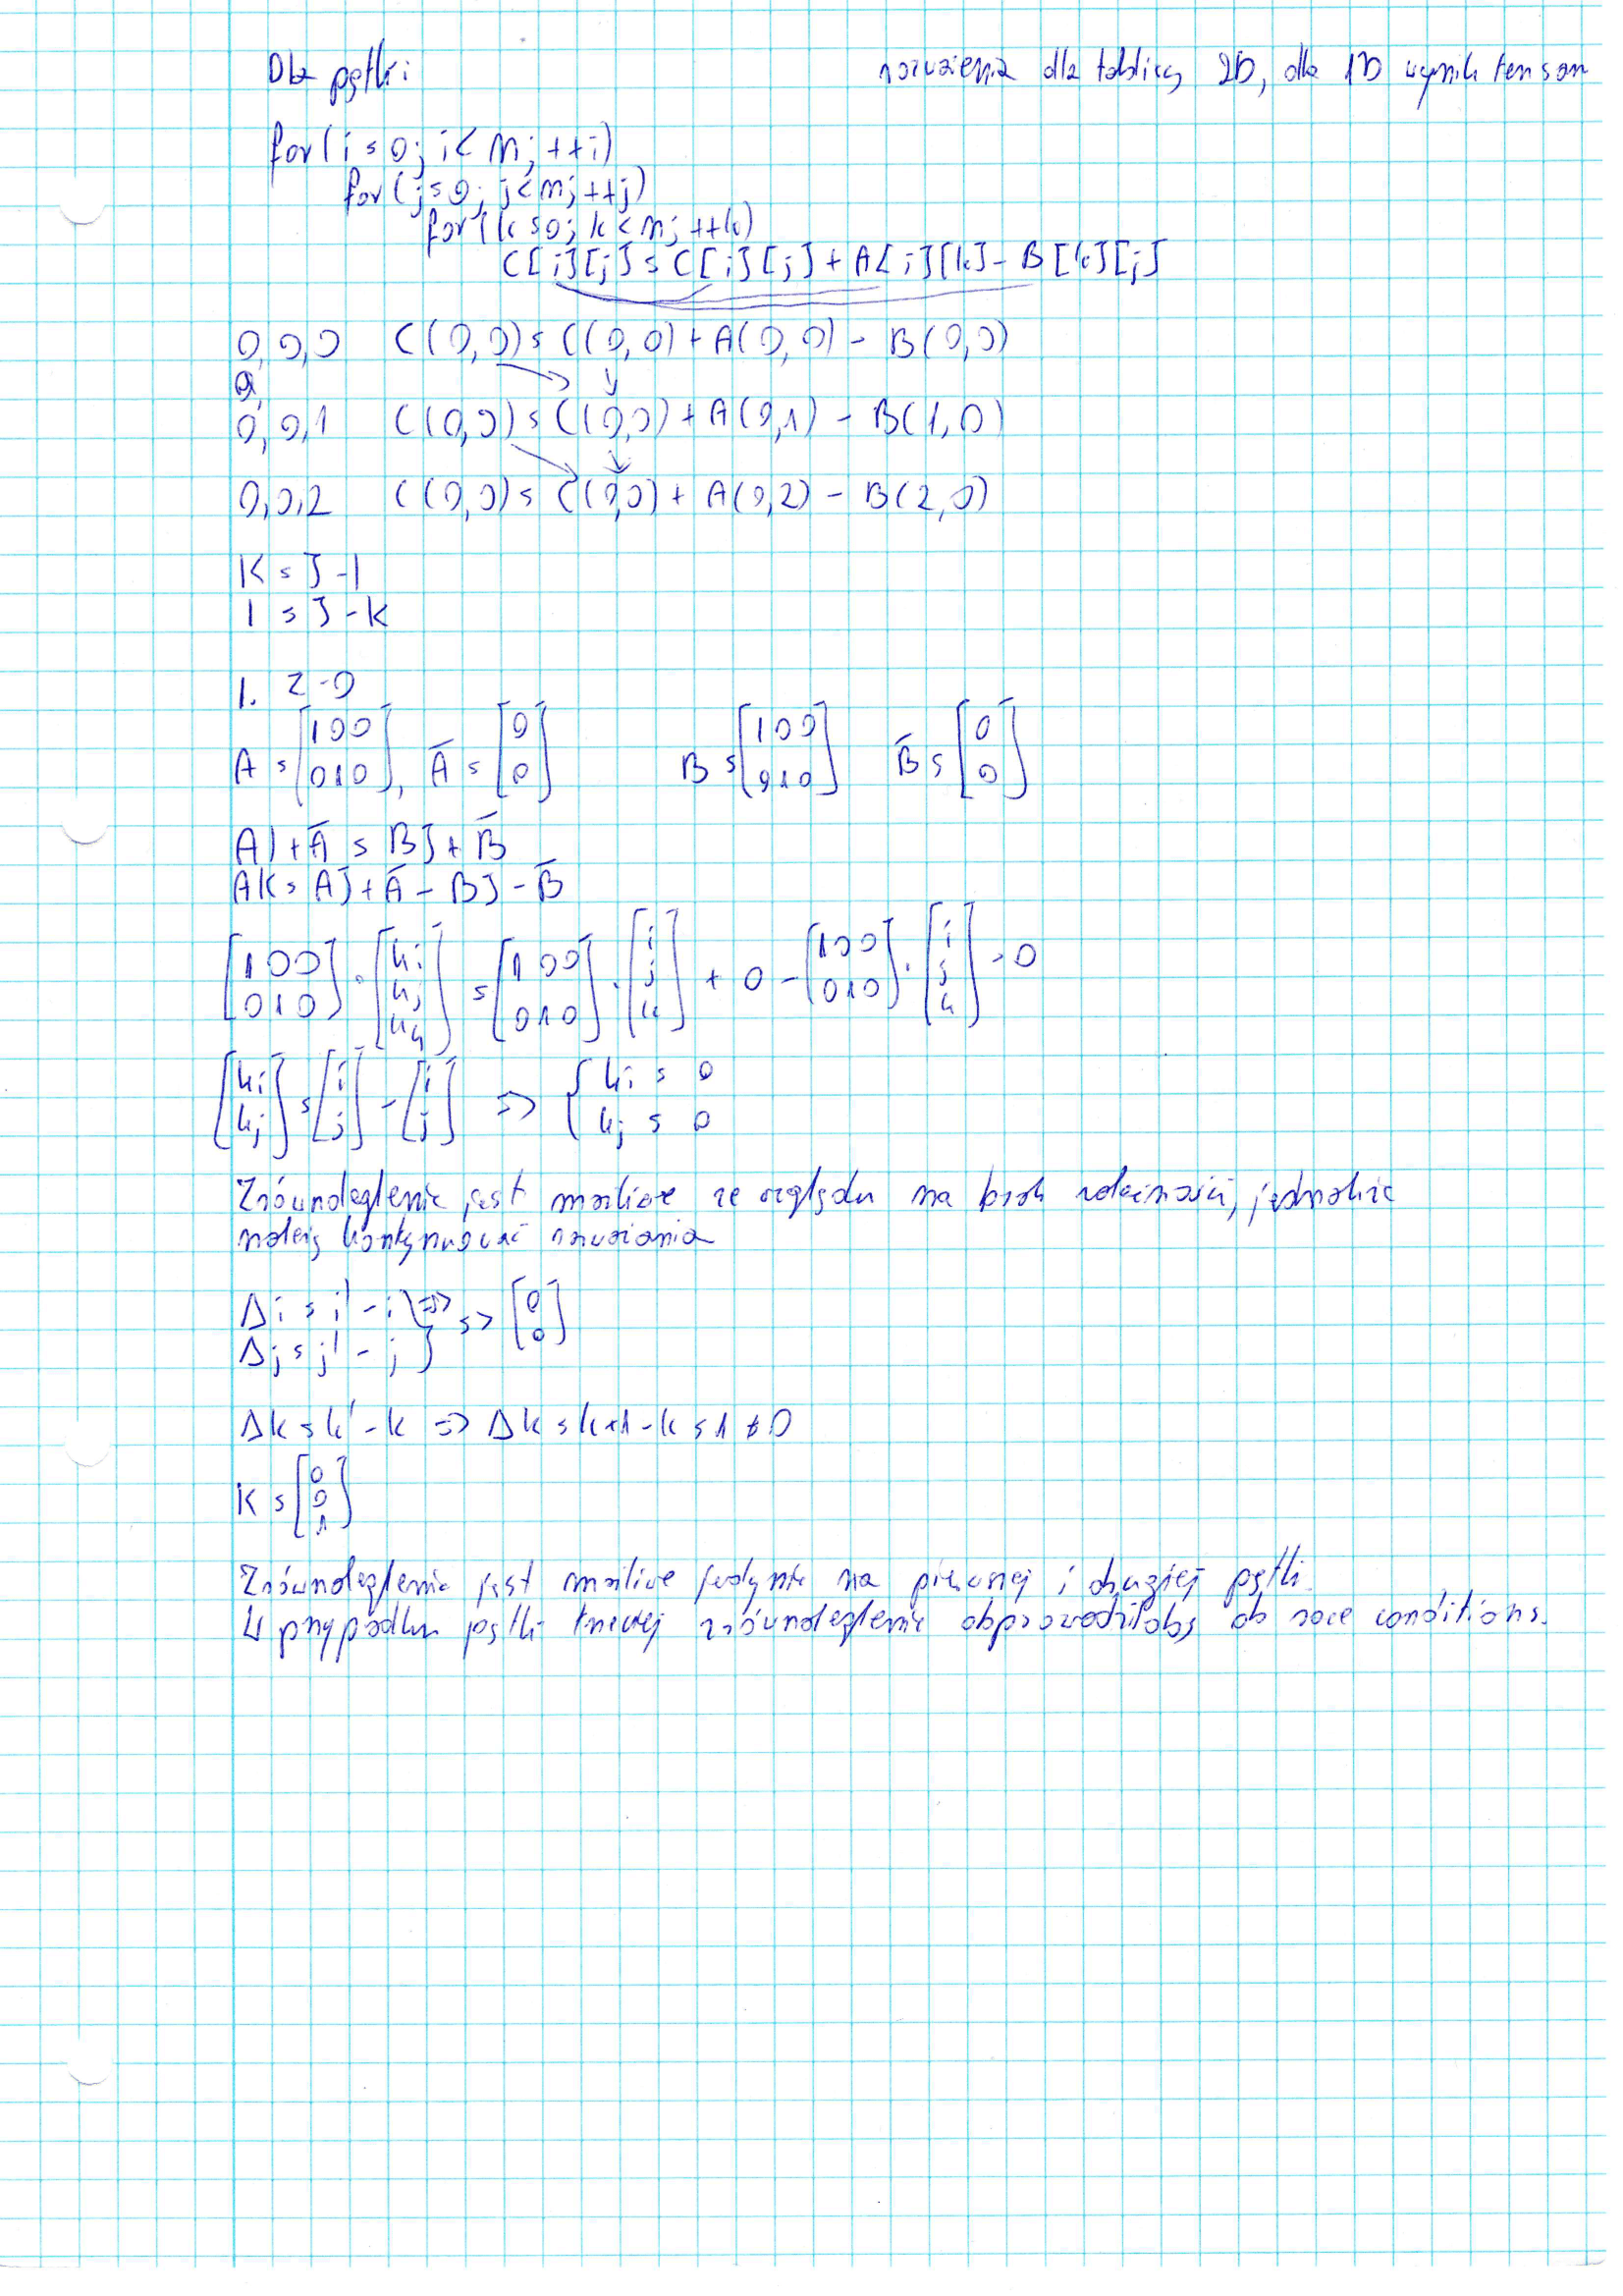 Dla pętli:
rozważenia dla tablicy 2D, dla 1D wynik ten sam
for(i=0; i<n; ++i)
for(j=0; j<n; ++j)
for(k=0; k<n; ++k)
C[i][j] = C[i][j] + A[i][k] - B[k][j]
0,0,0 C(0,0) = C(0,0) + A(0,0) - B(0,0)
0,
0,0,1 C(0,0) = C(0,0) + A(0,1) - B(1,0)
0,0,2 C(0,0) = C(0,0) + A(0,2) - B(2,0)
K = J - I
I = J - K
1. Z-O
A = [1 0 0 / 0 1 0], Ā = [0 / 0] B = [1 0 0 / 0 1 0] B̄ = [0 / 0]
AI + Ā = BJ + B̄
AK = AJ + Ā - BJ - B̄
[1 0 0 / 0 1 0] · [ki / kj / kk] = [1 0 0 / 0 1 0] · [i / j / k] + 0 - [1 0 0 / 0 1 0] · [i / j / k] - 0
[ki / kj] = [i / j] - [i / j] => { ki = 0 / kj = 0
Zrównoleglenie jest możliwe ze względu na brak zależności, jednakże
należy kontynuować rozważania
Δi = i' - i } =>
Δj = j' - j } => [0 / 0]
Δk = k' - k => Δk = k+1 - k = 1 ≠ 0
K = [0 / 0 / 1]
Zrównoleglenie jest możliwe jedynie na pierwszej i drugiej pętli.
W przypadku pętli trzeciej zrównoleglenie doprowadziłoby do race conditions.